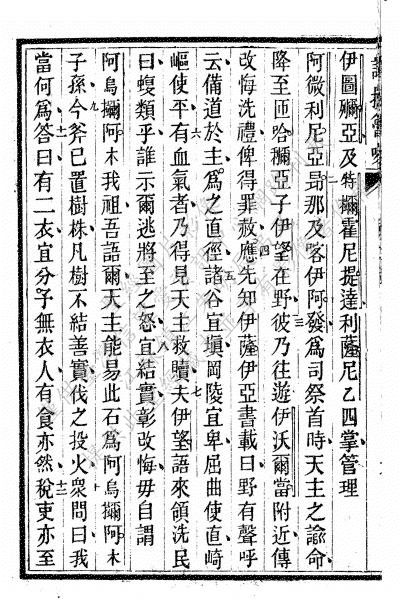 伊圖彌亞及特爾霍尼提達利薩尼乙四掌管理
阿微利尼亞昻那及喀伊阿發爲司祭首時天主之諭命
降至匝哈爾亞子伊望在野彼乃往遊伊沃爾當附近傳
改悔洗禮俾得罪赦應先知伊薩伊亞書載曰野有聲呼
云備道於主爲之直徑諸谷宜塡岡陵宜卑屈曲使直崎
嶇使平有血氣者乃得見天主救贖夫伊望語來領洗民
曰蝮類乎誰示爾逃將至之怒宜結實彰改悔毋自謂
阿烏攔阿木我祖吾語爾天主能易此石爲阿烏攔阿木
子孫今斧已置樹株凡樹不結善實伐之投火衆問曰我
當何爲答曰有二衣宜分子無衣人有食亦然稅吏亦至